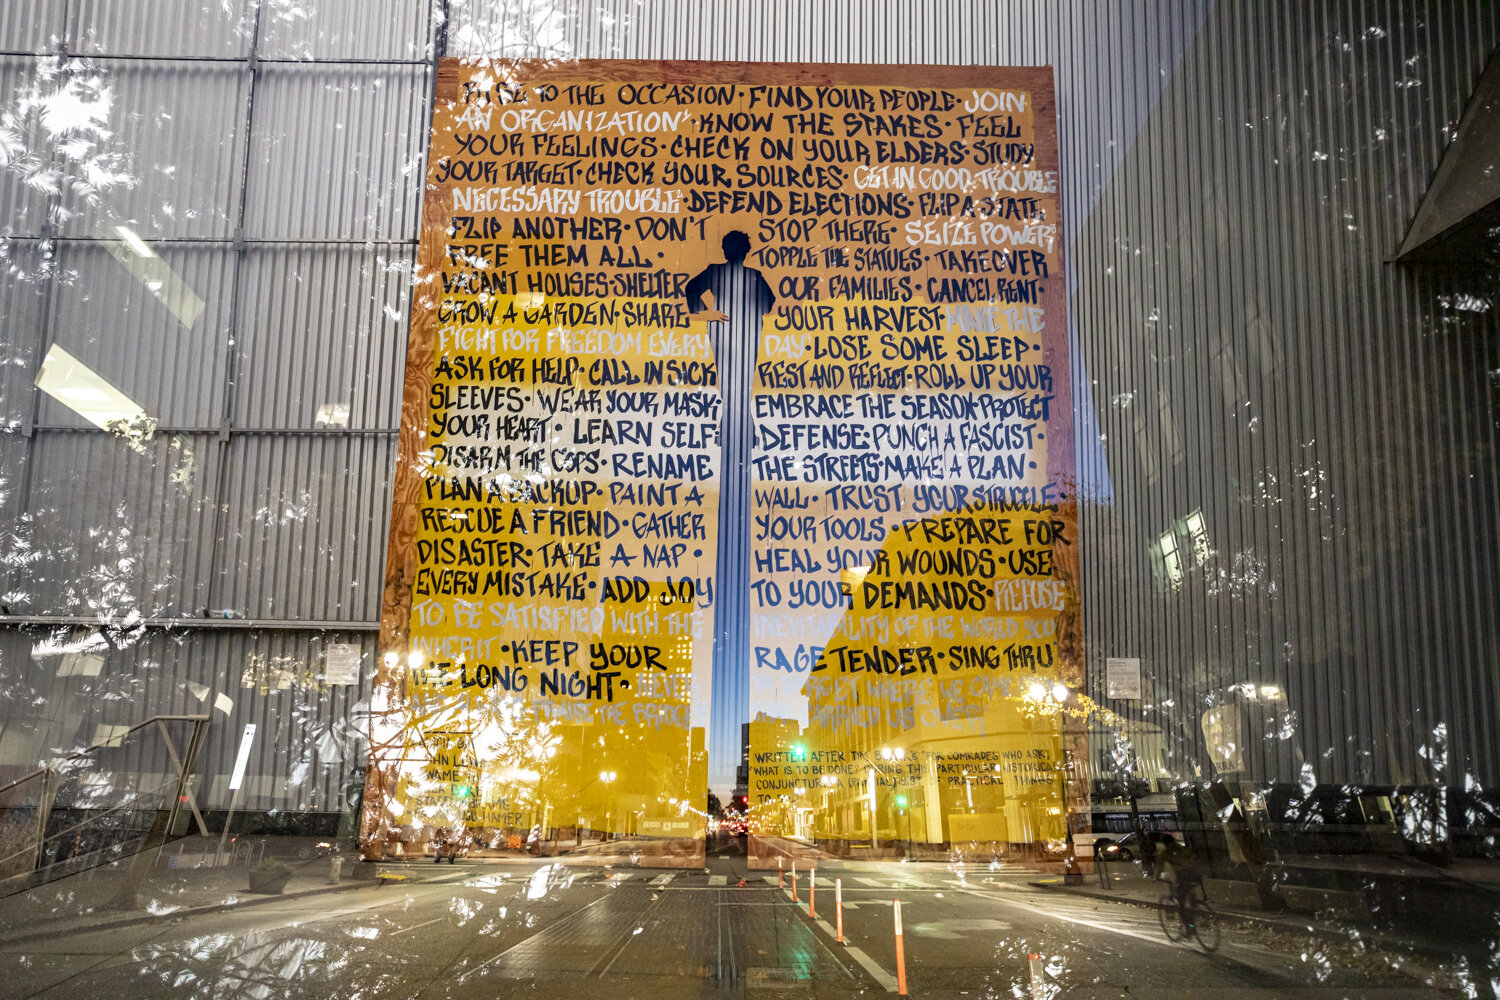 RISE TO THE OCCASION · FIND YOUR PEOPLE · JOIN
AN ORGANIZATION¹ · KNOW THE STAKES · FEEL
YOUR FEELINGS · CHECK ON YOUR ELDERS · STUDY
YOUR TARGET · CHECK YOUR SOURCES · GET IN GOOD TROUBLE
NECESSARY TROUBLE² · DEFEND ELECTIONS · FLIP A STATE
FLIP ANOTHER · DON'T STOP THERE · SEIZE POWER³
FREE THEM ALL · TOPPLE THE STATUES · TAKEOVER
VACANT HOUSES · SHELTER OUR FAMILIES · CANCEL RENT ·
GROW A GARDEN · SHARE YOUR HARVEST · MAKE THE
FIGHT FOR FREEDOM EVERY DAY · LOSE SOME SLEEP ·
ASK FOR HELP · CALL IN SICK REST AND REFLECT · ROLL UP YOUR
SLEEVES · WEAR YOUR MASK · EMBRACE THE SEASON · PROTECT
YOUR HEART · LEARN SELF DEFENSE · PUNCH A FASCIST ·
DISARM THE COPS · RENAME THE STREETS · MAKE A PLAN ·
PLAN A BACKUP · PAINT A WALL · TRUST YOUR STRUGGLE ·
RESCUE A FRIEND · GATHER YOUR TOOLS · PREPARE FOR
DISASTER · TAKE A NAP · HEAL YOUR WOUNDS · USE
EVERY MISTAKE · ADD JOY TO YOUR DEMANDS · REFUSE
TO BE SATISFIED WITH THE INEVITABILITY OF THE WORLD YOU
INHERIT · KEEP YOUR RAGE TENDER · SING THRU
THE LONG NIGHT · NEVER FORGET WHERE WE CAME
PRAISE THE BRIDGE CARRIED US OVER
WRITTEN AFTER TIM "FOR COMRADES WHO ASK,
WHAT IS TO BE DONE? DURING THIS PARTICULAR HISTORICAL
CONJUNCTURE A (PARTIAL) LIST PRACTICAL THINGS
TO
HAMER